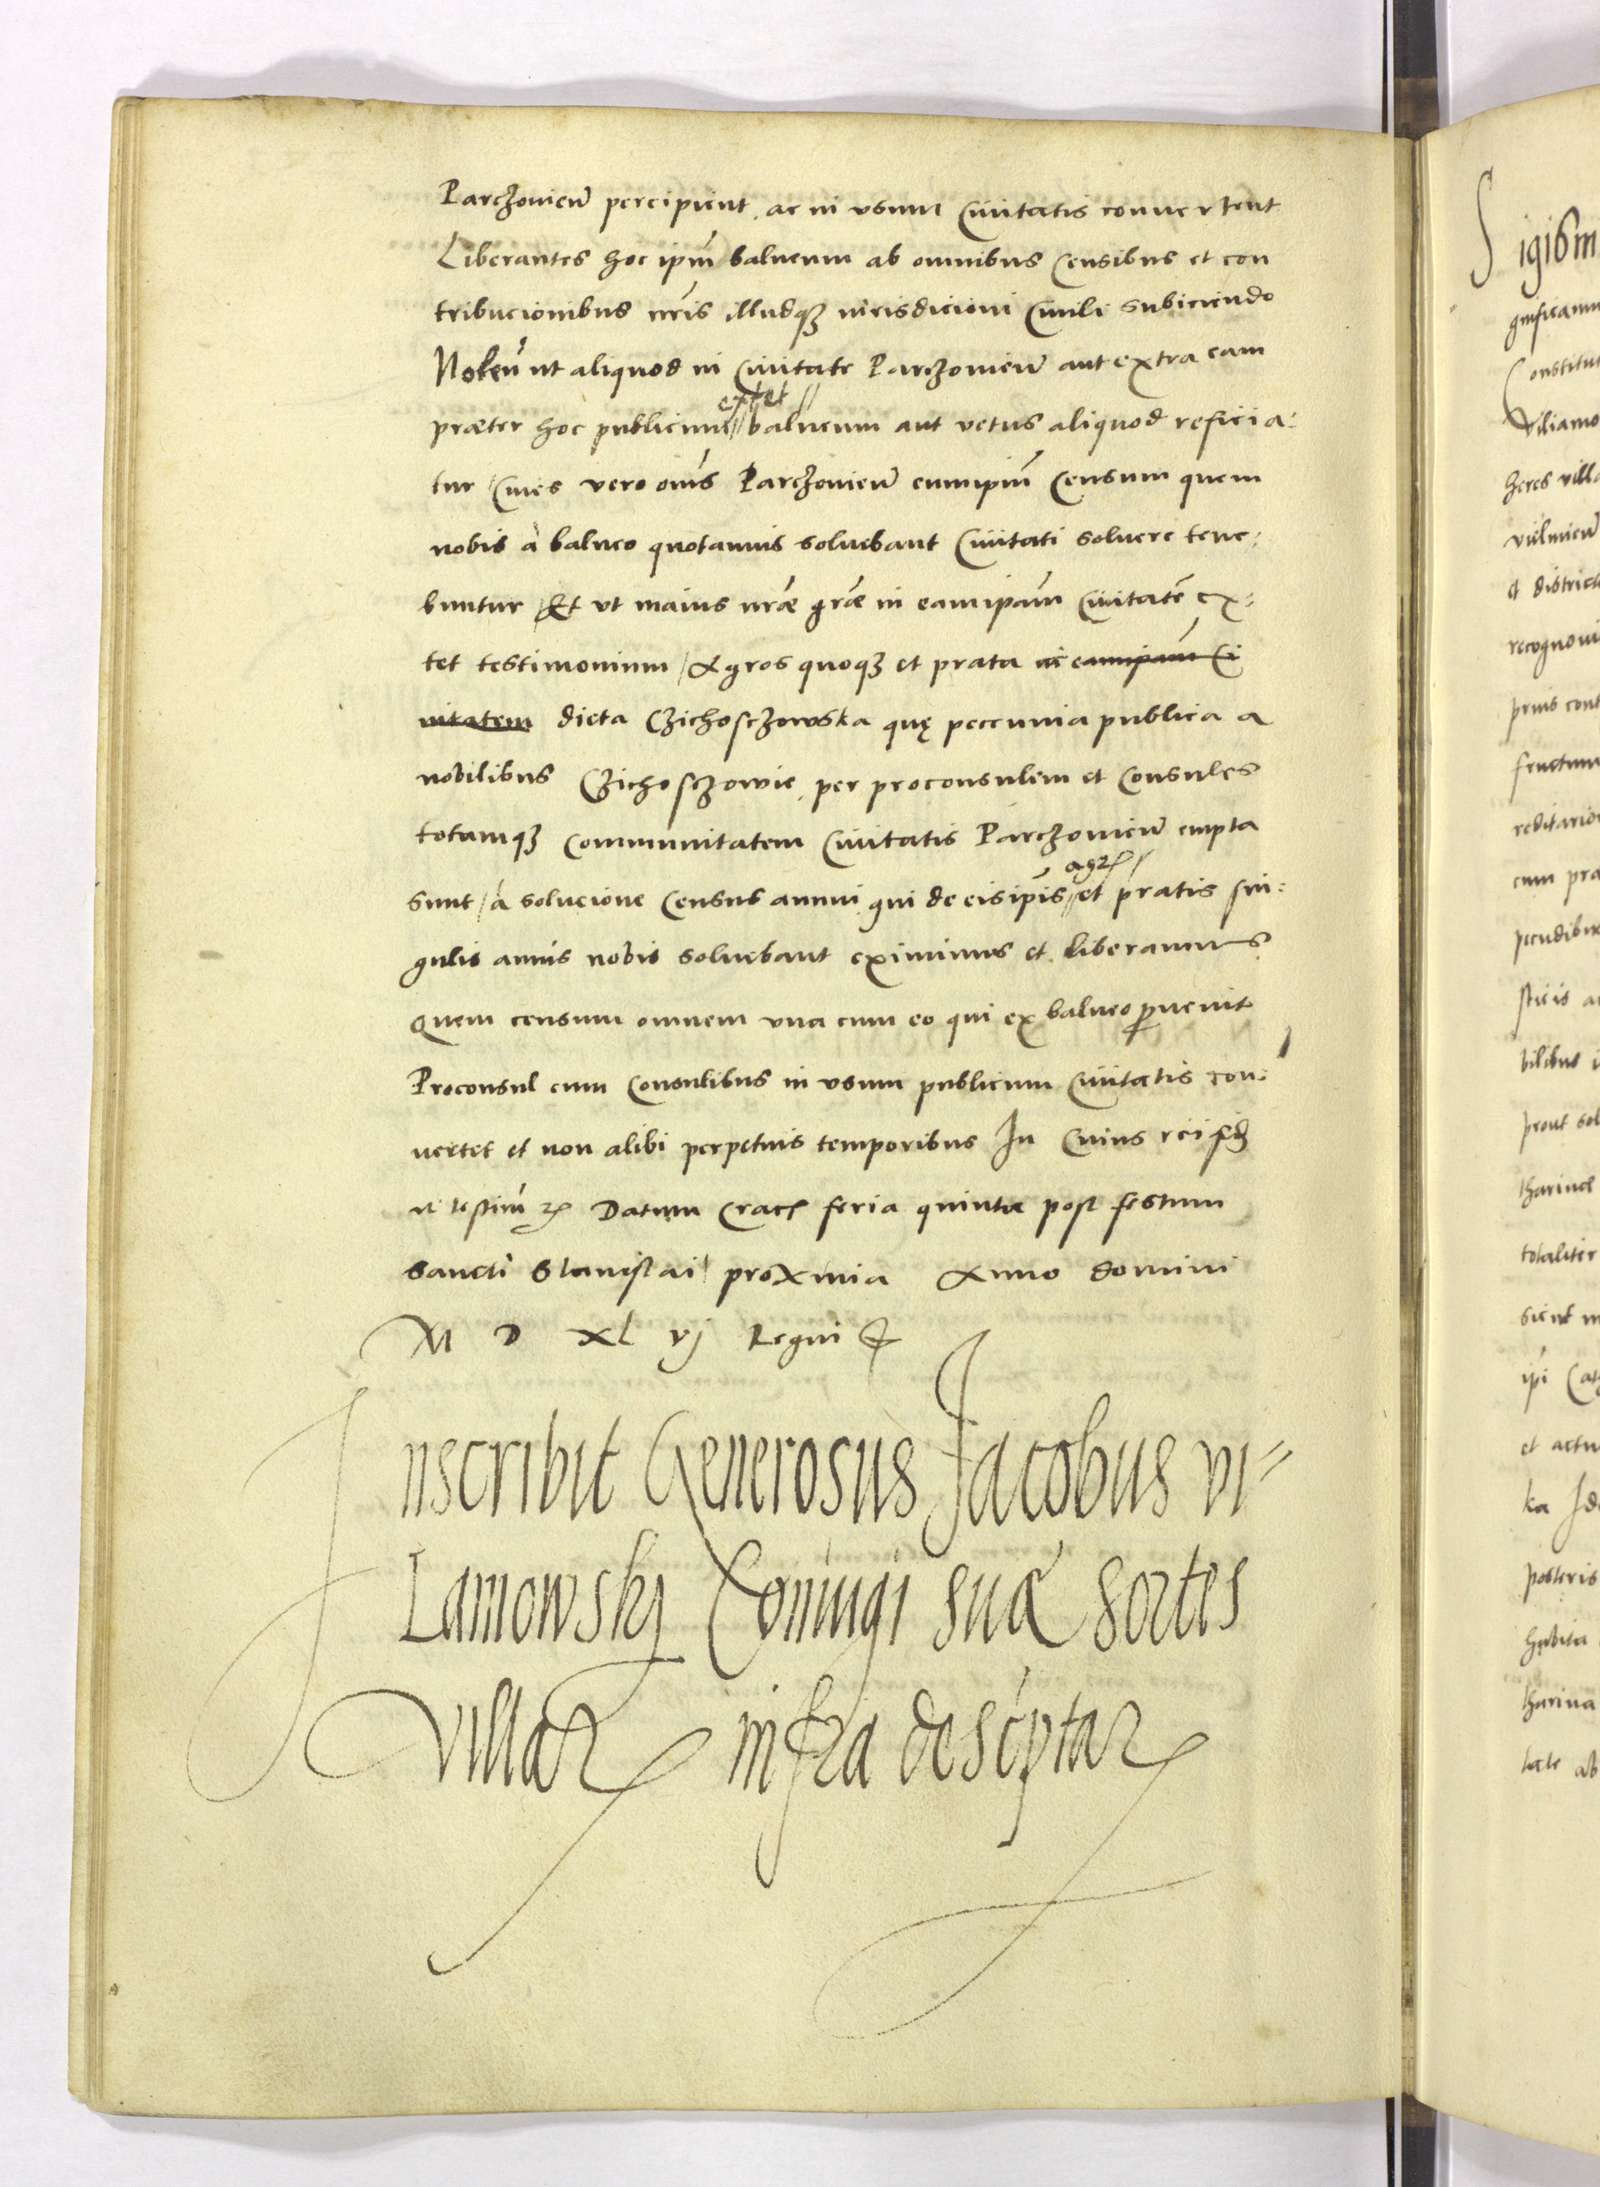 Parczovieñ percipient, ac in usum Civitatis convertent
Liberantes hoc ipm̃ balneum ab omnibus Censibus et con
tribucionibus nr̃is illudqꝫ iurisdicioni Civili subiiciendo
Noleñ ut aliquod in Civitate Parczovieñ aut extra eam
extet
præter hoc publicum // balneum aut vetus aliquod reficia:
tur / Cives vero om̃s Parczovieñ eumipm̃ Censum quem
nobis à balneo quotannis solvebant Civitati solvere tene:
buntur / Et ut maius nr̃æ gr̃æ in eamipam̃ Civitatẽ ex:
tet testimonium / Agros quoqꝫ et prata in eamipam̃ Ci
vitatem dicta Czichosczowska quę peccunia publica a
nobilibus Czichosczowie per proconsulem et Consules
totamqꝫ communitatem Civitatis Parczovieñ empta
agꝝ
sunt / à solucione Census annui qui de eisipĩs // et pratis sin:
gulis annis nobis solvebant eximimus et liberamus
Quem censum omnem una cum eo qui ex balneo ꝓvenit
Proconsul cum Consulibus in usum publicum Civitatis con:
vertet et non alibi perpetuis temporibus In Cuius rei fidẽ
et testim̃ ꝛc Datum Cracꝭ feria quinta post festum
Sancti Stanislai proxima Anno domini
M D XL vj Regni ꝛc
Inscribit Generosus Jacobus Vi=
Lamowskj Coniugi suæ sortes
villaꝝ infra descꝛiptaꝝ
Sigism
gnificamu
Constitut
Viliamo
heres villa
vielmieñ
et district
recognovi
prius cont
fructum
reditario
cum pra
pecudibu
sticis a
bilibus i
prout sol
tharinæ
totaliter
sicut in
ipi Cat
et actu
ka Id
posteris
habita
tharina
tate ab